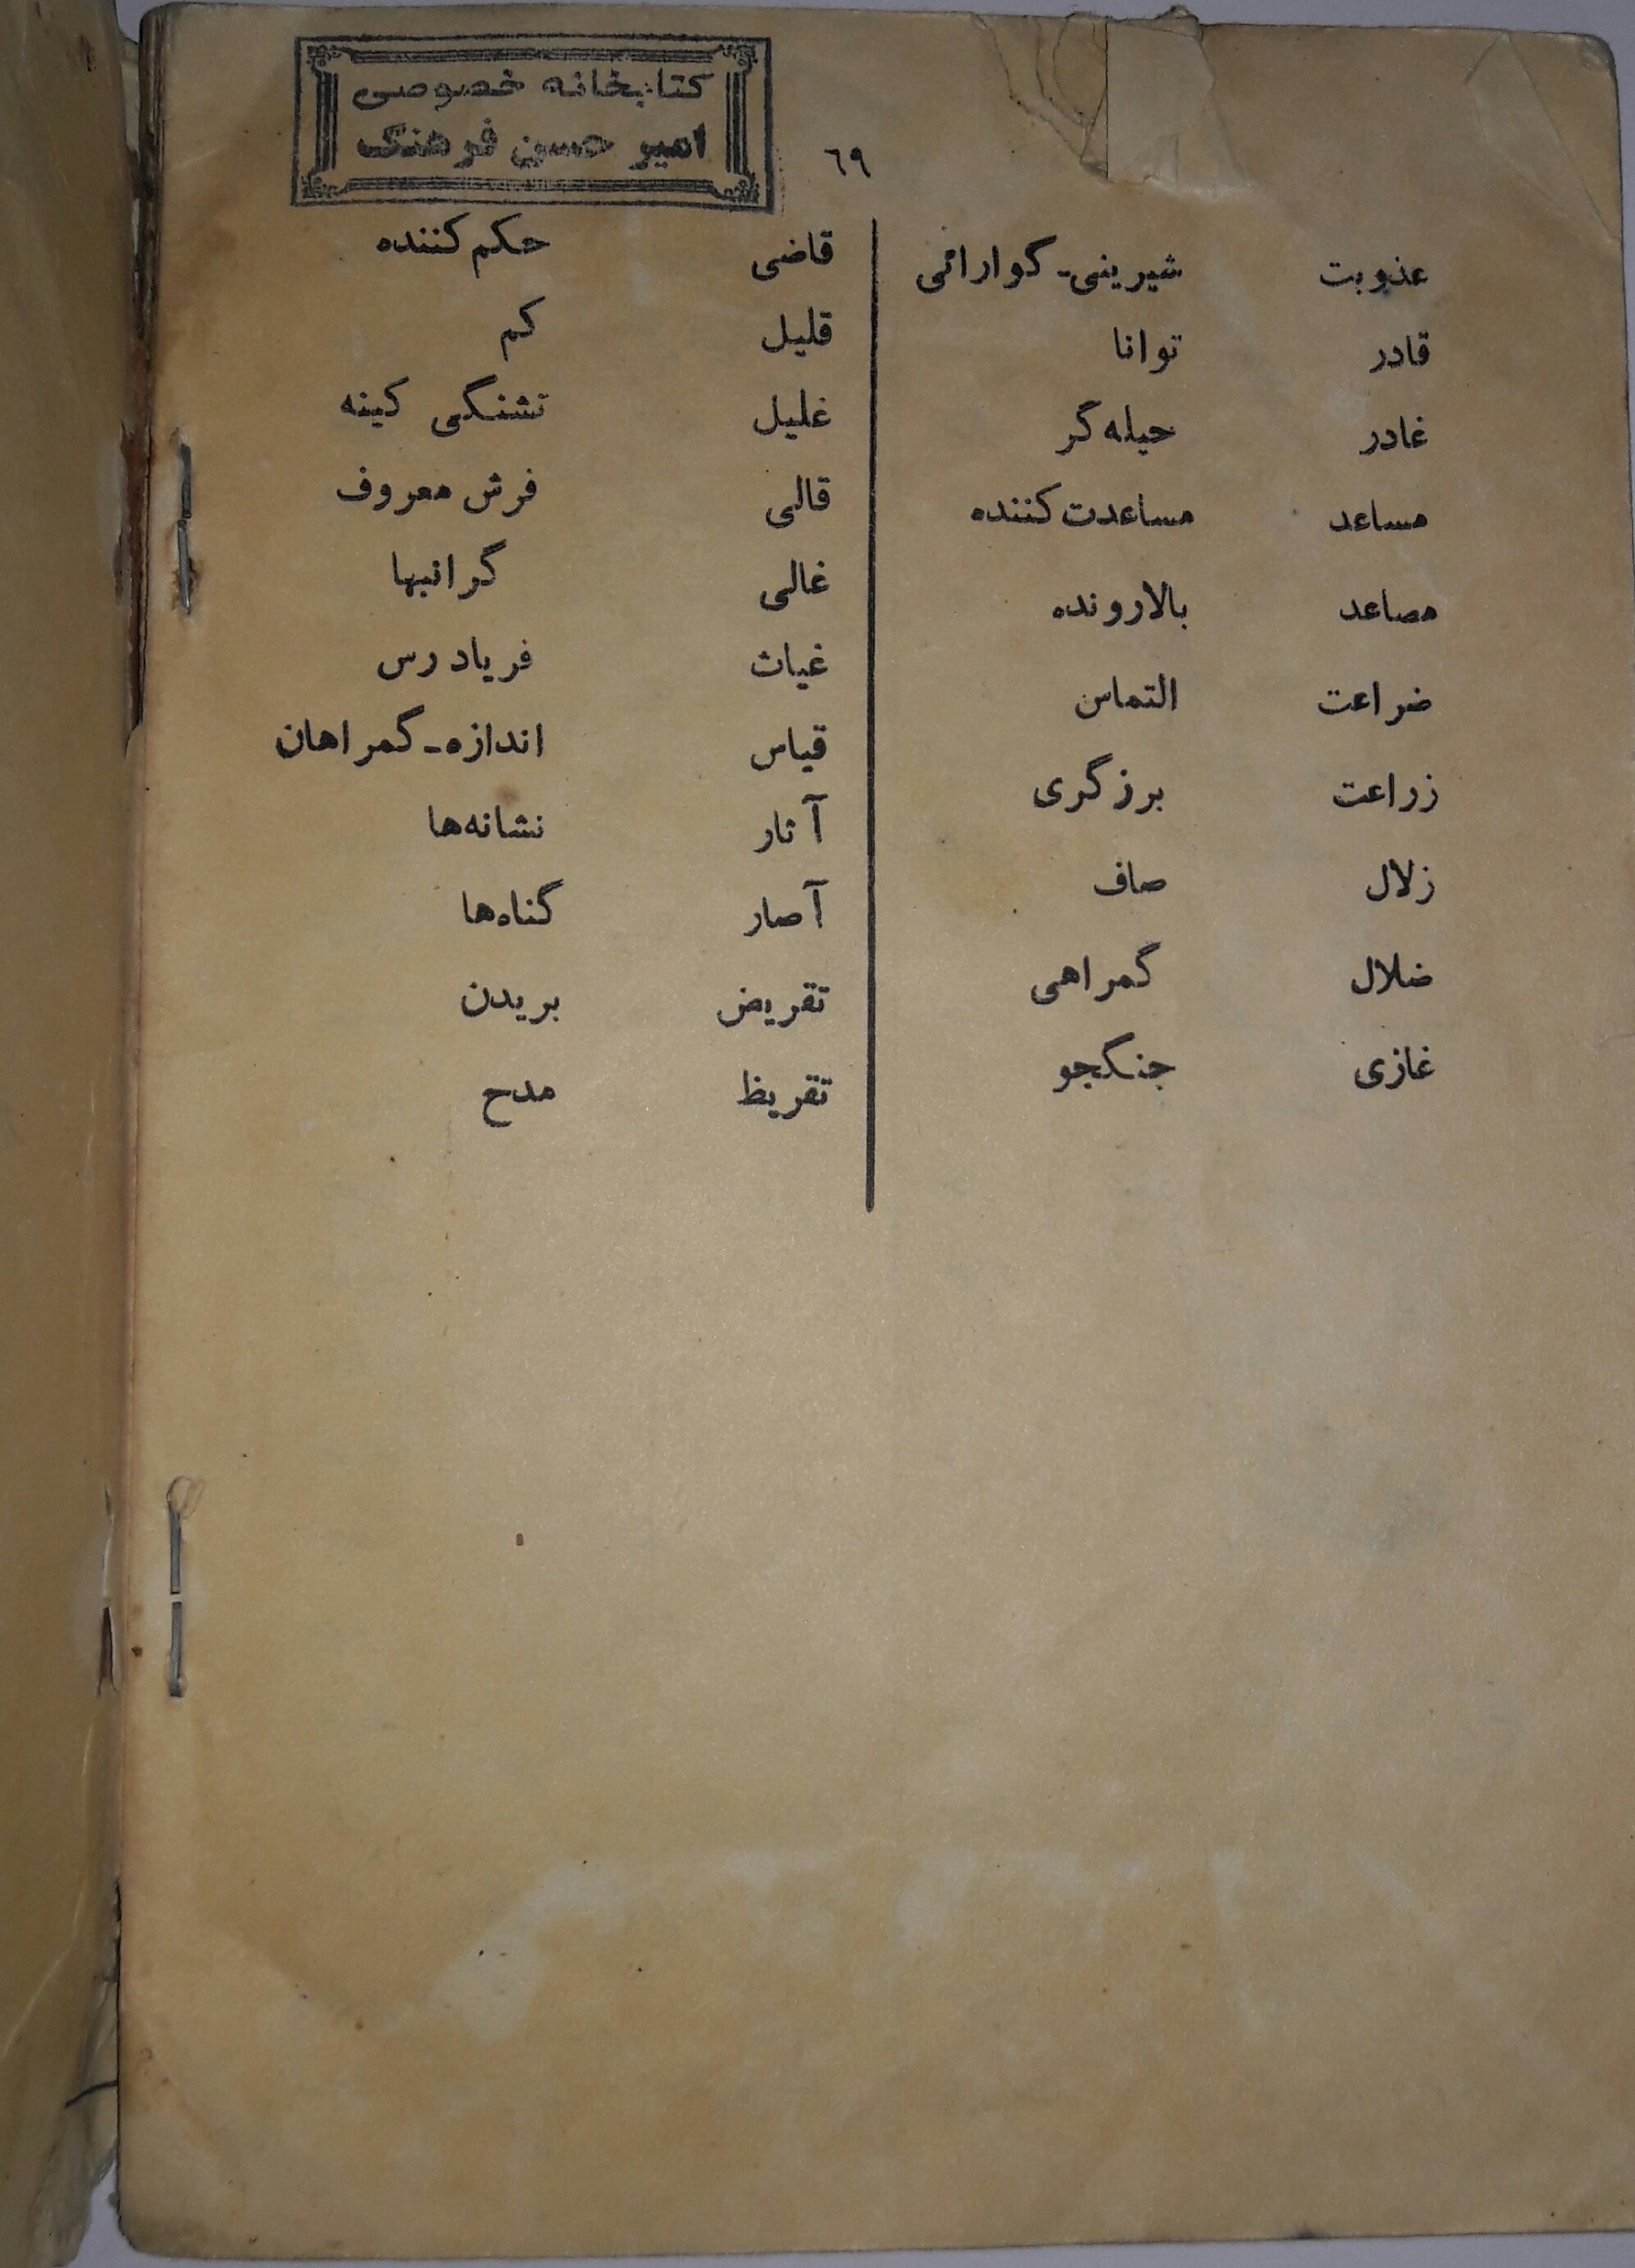 کتابخانه خصوصی
امیر حسین فرهنگ
٦٩
عذوبت شیرینی-گوارائی
قادر توانا
غادر حیله‌گر
مساعد مساعدت‌کننده
مصاعد بالارونده
ضراعت التماس
زراعت برزگری
زلال صاف
ضلال گمراهی
غازی جنگجو
قاضی حکم‌کننده
قلیل کم
غلیل تشنگی کینه
قالی فرش معروف
غالی گرانبها
غیاث فریادرس
قیاس اندازه-گمراهان
آثار نشانه‌ها
آصار گناه‌ها
تقریض بریدن
تقریظ مدح